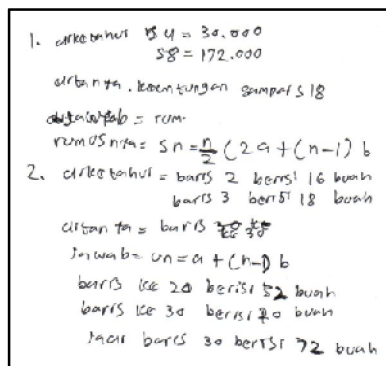 1. diketahui S4 = 30.000
S8 = 172.000
ditanya. keuntungan sampai S 18
dijawab = rum.
rumusnya = Sn = n/2 (2a + (n-1) b
2. diketahui = baris 2 berisi 16 buah
baris 3 berisi 18 buah
ditanya = baris ke 30
Jawab = un = a + (n-1) b
baris ke 20 berisi 52 buah
baris ke 30 berisi 70 buah
Jadi baris 30 berisi 72 buah